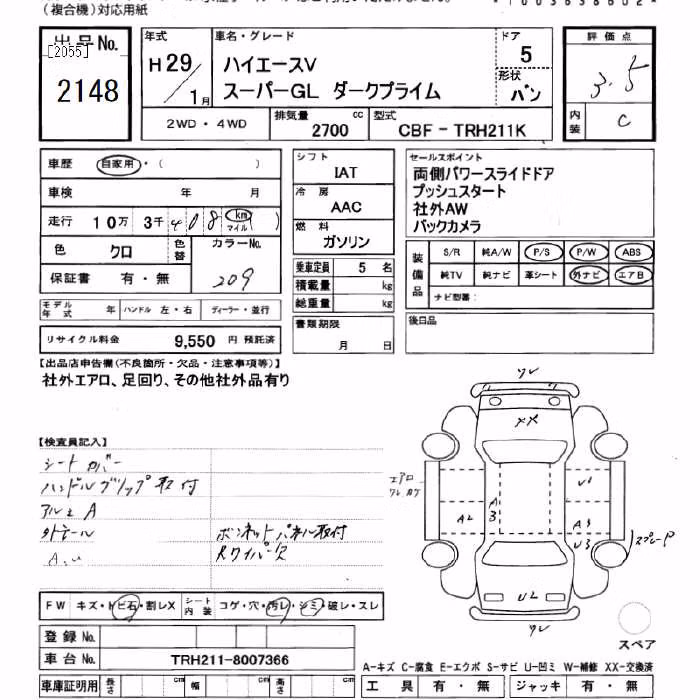 (複合機)対応用紙
出品No.
[2055]
2148
年式
H29/1月
車名・グレード
ハイエースV
スーパーGL ダークプライム
ドア
5
形状
バン
評価点
3.5
内装
C
2WD・4WD
排気量
2700 cc
型式
CBF-TRH211K
車歴 自家用・( )
車検 年 月
走行 10万 3千 408 km マイル ( )
色 クロ 色替 カラーNo.
209
保証書 有・無
モデル年式 年 ハンドル 左・右 ディーラー・並行
リサイクル料金 9,550 円 預託済
シフト
IAT
冷房
AAC
燃料
ガソリン
乗車定員 5 名
積載量 kg
総重量 kg
書類期限
月 日
セールスポイント
両側パワースライドドア
プッシュスタート
社外AW
バックカメラ
装備品
S/R 純A/W P/S P/W ABS
純TV 純ナビ 革シート 外ナビ エアB
ナビ型番:
後日品
【出品店申告欄(不良箇所・欠品・注意事項等)】
社外エアロ、足回り、その他社外品有り
【検査員記入】
シートカバー
ハンドルグリップ取付
アルミA
外テール
ボンネットパネル取付
Rワイパー欠
ワレ
XX
エアロ
ワレカケ
A2
A3
U1
A3
U3
スプレーP
UL
ワレ
スペア
FW キズ・トビ石・割レX シート内装 コゲ・穴・汚レ・シミ・破レ・スレ
登録No.
車台No. TRH211-8007366
車庫証明用 長さ cm 幅 cm 高さ cm
A-キズ C-腐食 E-エクボ S-サビ U-凹ミ W-補修 XX-交換済
工具 有・無 ジャッキ 有・無